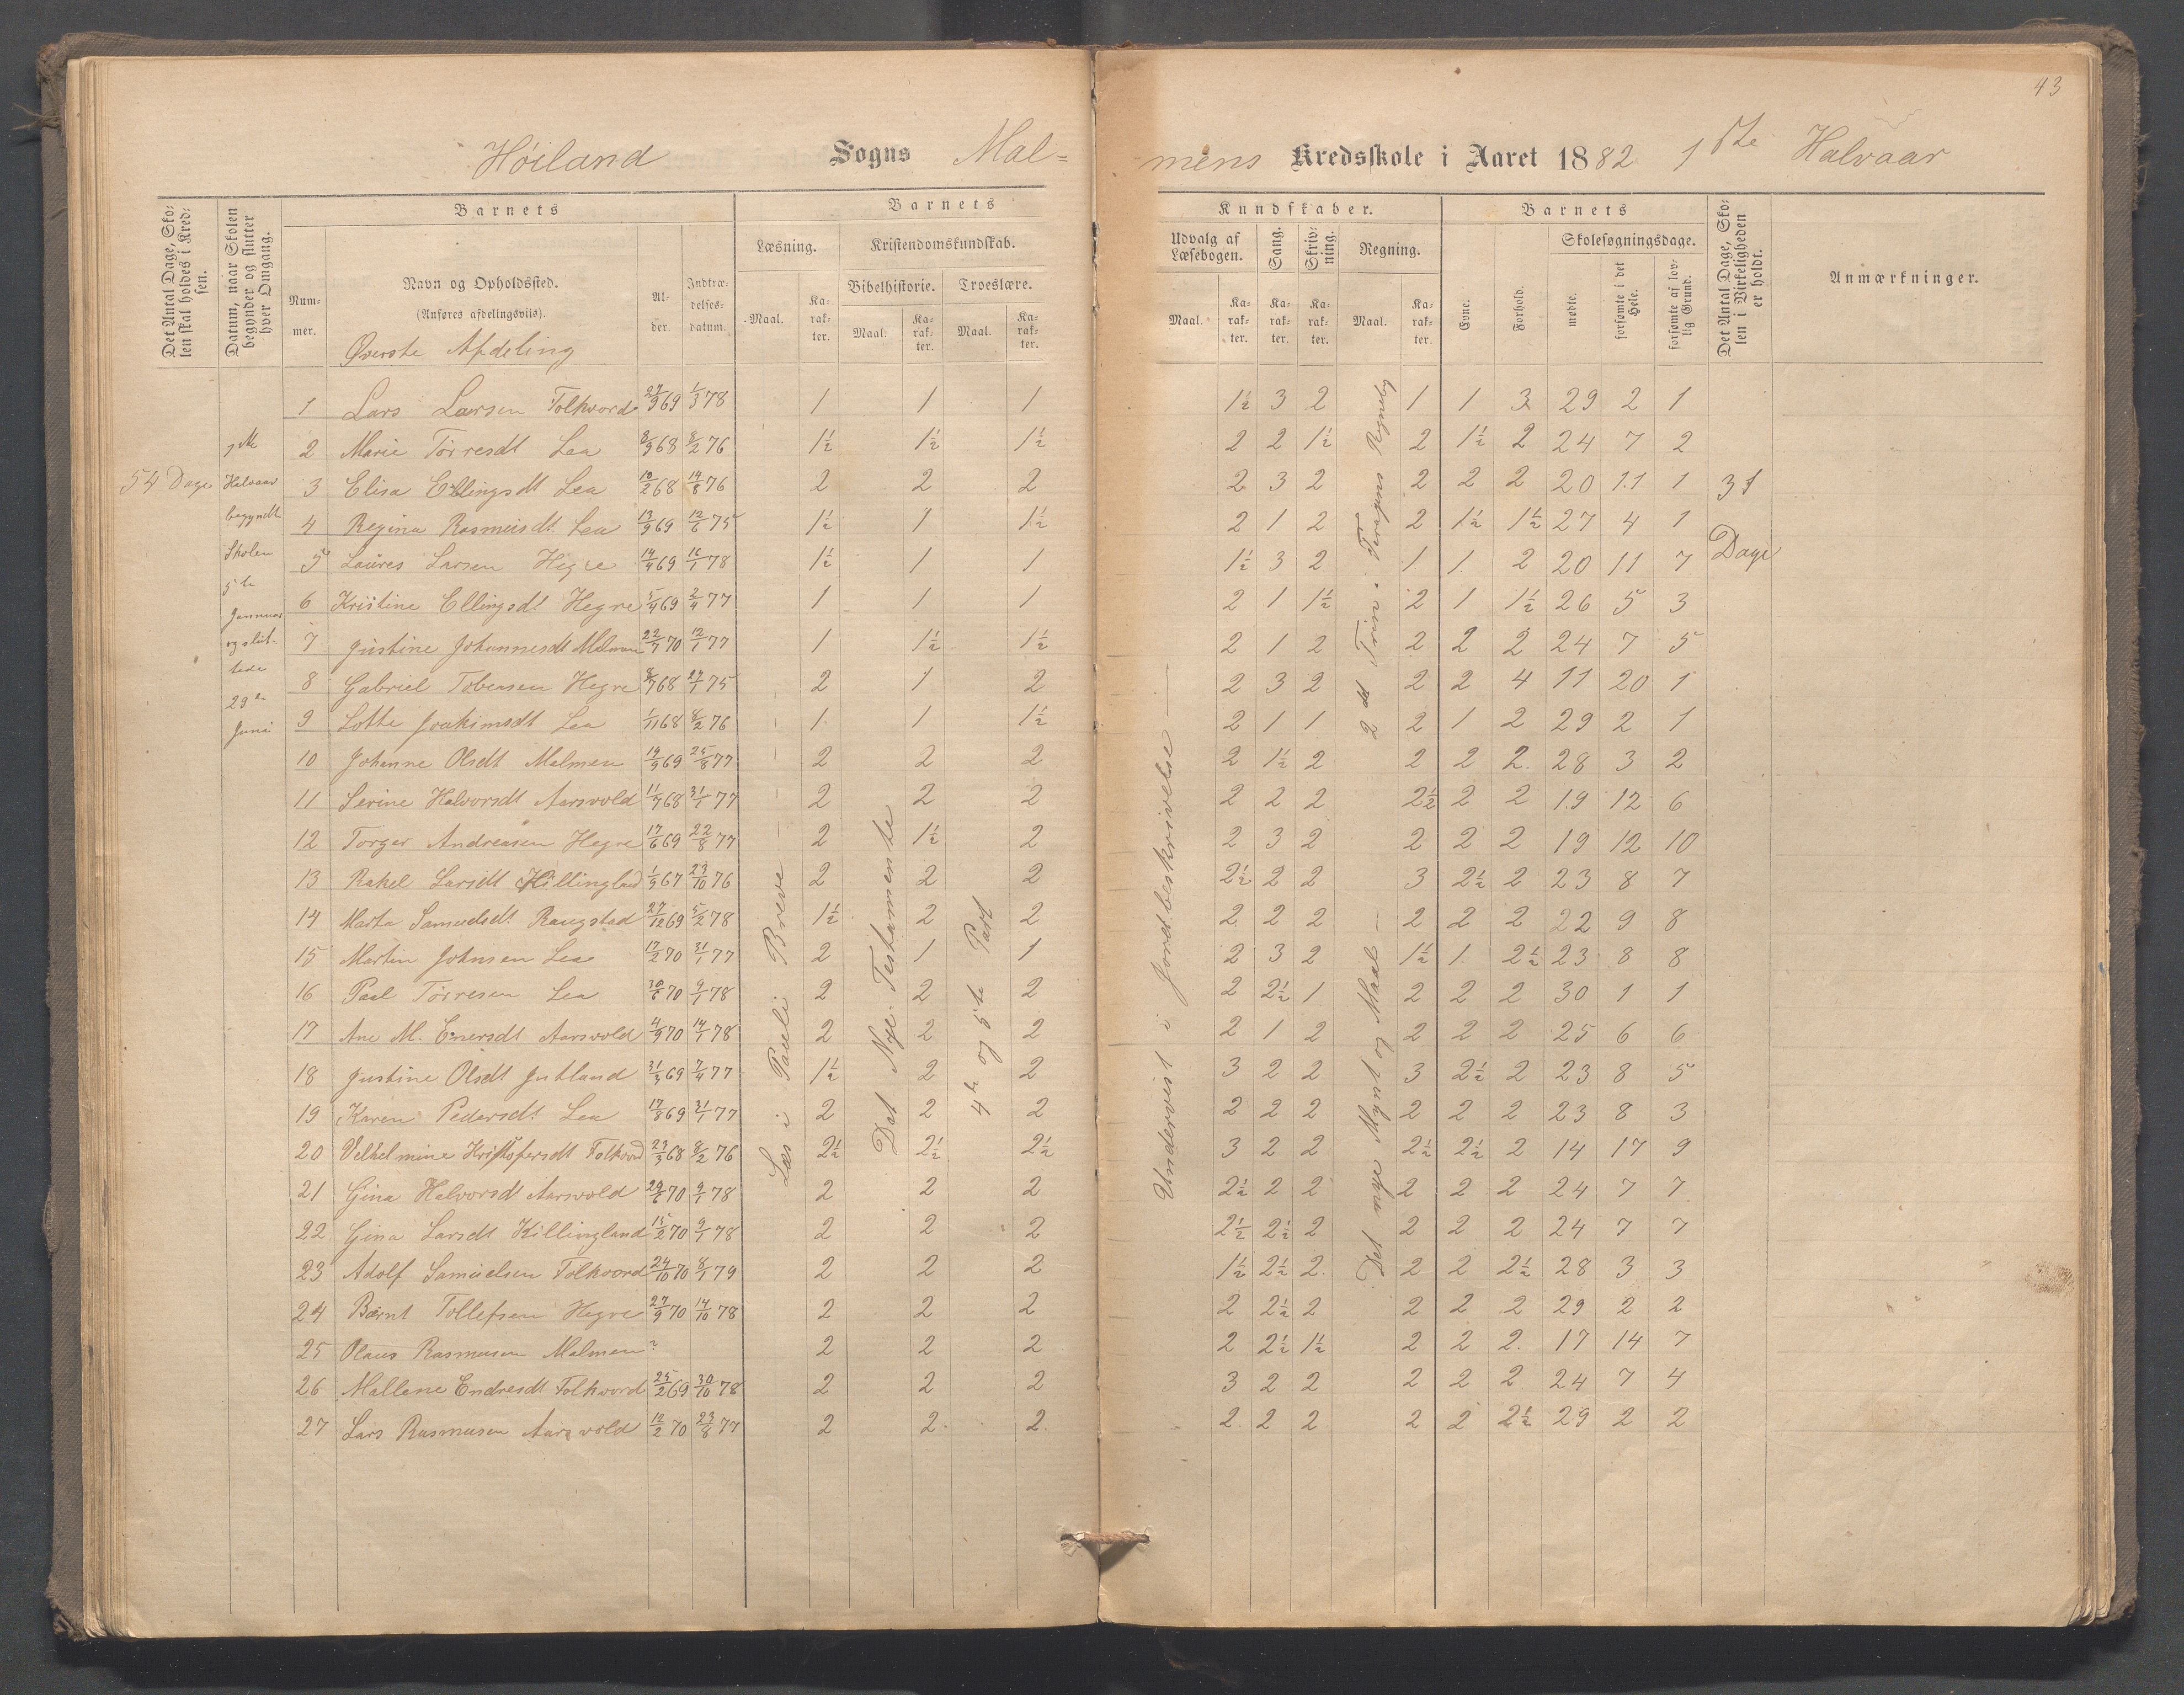 43
Høiland Sogns Mal=
mens Kredsskole i Aaret 1882 1ste Halvaar
Det Antal Dage, Sko= len skal holdes i Kred= sen.
Datum, naar Skolen begynder og slutter hver Omgang.
Barnets
Num= mer.
Navn og Opholdssted.
(Anføres afdelingsviis).
Øverste Afdeling
Al= der.
Indtræ= delses= datum.
Barnets
Læsning.
Maal.
Ka= rak= ter.
Kristendomskundskab.
Bibelhistorie.
Maal.
Ka= rak= ter.
Troeslære.
Maal.
Ka= rak= ter.
Kundskaber.
Udvalg af Læsebogen.
Maal.
Ka= rak= ter.
Sang.
Ka= rak= ter.
Skriv= ning.
Ka= rak= ter.
Regning.
Maal.
Ka= rak= ter.
Barnets
Evne.
Forhold.
Skolesøgningsdage.
mødte.
forsømte i det Hele.
forsømte af lov= lig Grund.
Det Antal Dage, Sko= len i Virkeligheden er holdt.
Anmærkninger.
54 Dage
1ste
Halvaar
begyndte
Skolen
5te
Januar
og slut-
tede
23de
Juni
1 Lars Larsen Folkvord 27/9 69 1/3 78 1 1 1 1½ 3 2 1 1 3 29 2 1
2 Marie Tørresdt Lea 8/9 68 8/2 76 1½ 1½ 1½ 2 2 1½ 2 1½ 2 24 7 2
3 Elisa Ellingsdt Lea 10/2 68 14/8 76 2 2 2 2 3 2 2 2 2 20 11 1
4 Regina Rasmusdt Lea 13/9 69 12/6 75 1½ 1 1½ 2 1 2 2 1½ 1½ 27 4 1
5 Laures Larsen Hegre 14/4 69 16/1 78 1½ 1 1 1½ 3 2 1 1 2 20 11 7
6 Kristine Ellingsdt Hegre 5/4 69 2/4 77 1 1 1 2 1 1½ 2 1 1½ 26 5 3
7 Justine Johannesdt Malmen 22/7 70 12/1 77 1 1½ 1½ 2 1 2 2 2 2 24 7 5
8 Gabriel Tobersen Hegre 8/7 68 27/1 75 2 1 2 2 3 2 2 2 4 11 20 1
9 Lotte Joakimsdt Lea 1/11 68 8/2 76 1 1 1½ 2 1 1 2 1 2 29 2 1
10 Johanne Olsdt Malmen 19/9 69 25/8 77 2 2 2 2 1½ 2 2 2 2 28 3 2
11 Serine Halvorsdt Aarsvold 11/7 68 31/1 77 2 2 2 2 2 2 2½ 2 2 19 12 6
12 Torger Andreasen Hegre 17/6 69 22/8 77 2 1½ 2 2 3 2 2 2 2 19 12 10
13 Rakel Larsdt Killingland 1/9 67 23/10 76 2 2 2 2½ 2 2 3 2½ 2 23 8 7
14 Marta Samuelsdt Raugstad 27/12 69 5/2 78 1½ 2 2 2 2 2 2 2 2 22 9 8
15 Martin Johnsen Lea 17/2 70 31/1 77 2 1 1 2 3 2 1½ 1 2½ 23 8 8
16 Paal Tørresen Lea 30/6 70 9/1 78 2 2 2 2 2½ 1 2 2 2 30 1 1
17 Ane M. Enersdt Aarsvold 4/9 70 14/1 78 2 2 2 2 1 2 2 2 2 25 6 6
18 Justine Olsdt Jutland 31/3 69 7/4 77 1½ 2 2 3 2 2 3 2½ 2 23 8 5
19 Karen Pedersdt Lea 17/8 69 31/1 77 2 2 2 2 2 2 2 2 2 23 8 3
20 Velhelmine Kristofersdt Folkvord 23/3 68 8/2 76 2½ 2½ 2½ 3 2 2 2½ 2½ 2 14 17 9
21 Gina Halvorsdt Aarsvold 29/6 70 9/1 78 2 2 2 2½ 2 2 2 2 2 24 7 7
22 Gina Larsdt Killingland 15/2 70 9/1 78 2 2 2 2½ 2½ 2 2 2 2 24 7 7
23 Adolf Samuelsen Folkvord 24/10 70 8/1 79 2 2 2 1½ 2½ 2 2 2 2½ 28 3 3
24 Bernt Tollefsen Hegre 27/9 70 14/10 78 2 2 2 2 2½ 2 2 2 2 29 2 2
25 Olaus Rasmusen Malmen ? 2 2 2 2 2½ 1½ 2 2 2 17 14 7
26 Mallene Endresdt Folkvord 25/2 69 30/10 78 2 2 2 3 2 2 2 2 2 24 7 4
27 Lars Rasmusen Aarsvold 10/2 70 23/8 77 2 2 2 2 2 2 2 2 2½ 29 2 2
Læs i Pauli Breve
Det Nye Testamente
4de og 5te Part
Undervist i Jordbeskrivelse
Vægt og Maal
31
Dage